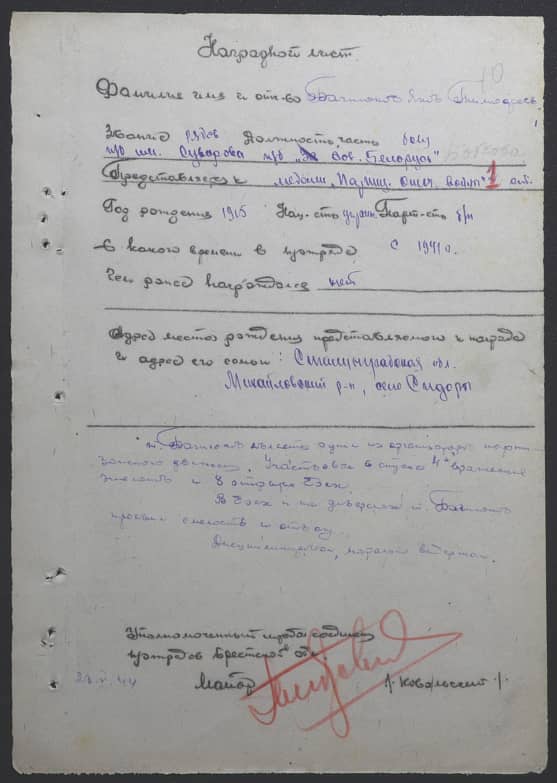 10
Наградной лист.
Фамилия имя и отч-во
Звание рядов Должность, часть боец
п/о им. Суворова п/б "За Сов. Белорусь"
Представляется к медали "Партиз. Отеч. войны" 1 ст.
Год рождения 1915 Нац-сть Парт-сть б/п
С какого времени в п/отряде с 1941 г.
Чем ранее награждался нет
Адрес места рождения представляемого к награде
и адрес его семьи: Сталинградская обл.
Михайловский р-н, село Сидоры
т. одним из организаторов парти-
занского движения. Участвовал в спуске 4х вражеских
эшелонов и 8 открытых боях.
В боях и на диверсиях т.
проявил смелость и отвагу.
Дисциплинирован, морально выдержан.
Уполномоченный штаба соедин.
п/отрядов Брестской обл.
Майор /. Ковальский /.